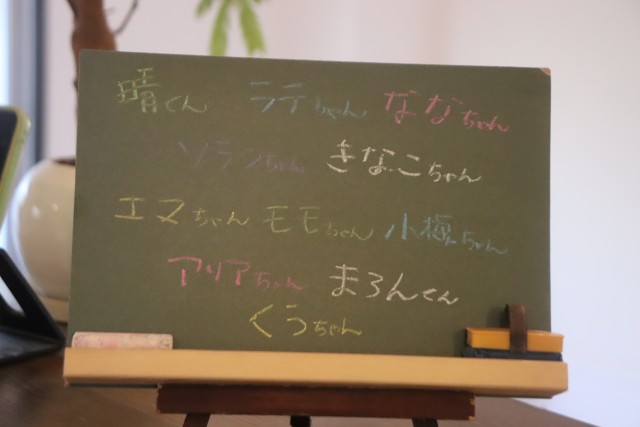 晴くん ラテちゃん ななちゃん
ソランちゃん きなこちゃん
エマちゃん モモちゃん 小梅ちゃん
アリアちゃん まろんくん
くうちゃん